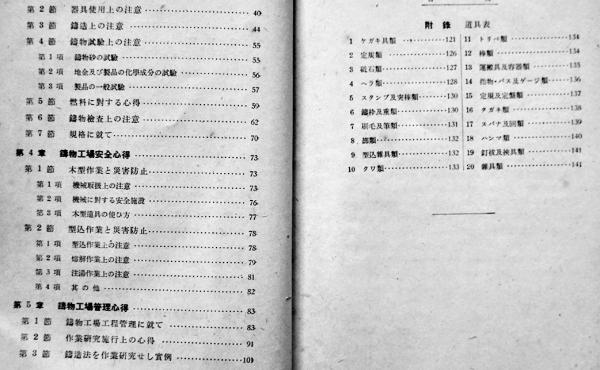 第2節　器具使用上の注意 40
第3節　鑄造上の注意 44
第4節　鑄物試驗上の注意 55
第1項　鑄物砂の試驗 55
第2項　地金及び製品の化學成分の試驗 56
第3項　製品の一般試驗 57
第5節　燃料に對する心得 59
第6節　鑄物檢査上の注意 62
第7節　規格に就て 70
第4章　鑄物工場安全心得 73
第1節　木型作業と災害防止 73
第1項　機械取扱上の注意 73
第2項　機械に對する安全施設 76
第3項　木型道具の使ひ方 77
第2節　型込作業と災害防止 78
第1項　型込作業上の注意 78
第2項　熔解作業上の注意 79
第3項　注湯作業上の注意 81
第4項　其の他 82
第5章　鑄物工場管理心得 83
第1節　鑄物工場工程管理に就て 83
第2節　作業研究施行上の心得 91
第3節　鑄造法を作業研究せし實例 101
附錄　道具表
1　ケガキ具類 121
2　定規類 126
3　砥石類 127
4　ヘラ類 128
5　スタンプ及突棒類 130
6　鑄枠及重類 130
7　刷毛及筆類 131
8　篩類 132
9　型込雜具類 132
10　タワ類 133
11　トリベ類 134
12　棒類 134
13　運搬具及容器類 135
14　指物・パス及ゲージ類 136
15　定規及定盤類 137
16　タガネ類 138
17　スパナ及回類 139
18　ハンマ類 140
19　釘拔及挾具類 141
20　雜具類 141